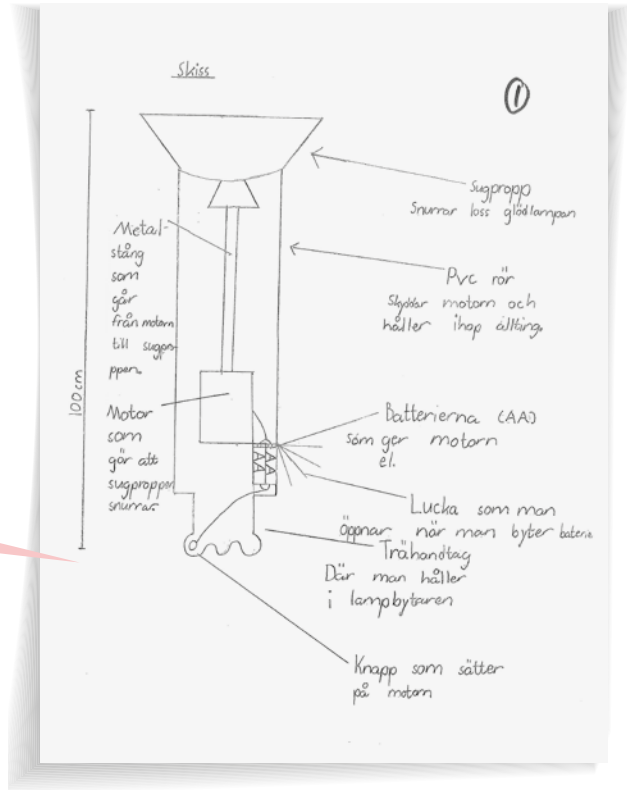 Skiss
1
Sugpropp
Snurrar loss glödlampan
Metal-
stång
som
går
från motorn
till sugpro-
ppen.
Pvc rör
Skyddar motorn och
håller ihop allting.
100cm
Motor
som
gör att
sugproppen
snurrar.
Batterierna (AA)
som ger motorn
el.
AA
AA
Lucka som man
öppnar när man byter baterie
Trähandtag
Där man håller
i lampbytaren
Knapp som sätter
på motorn